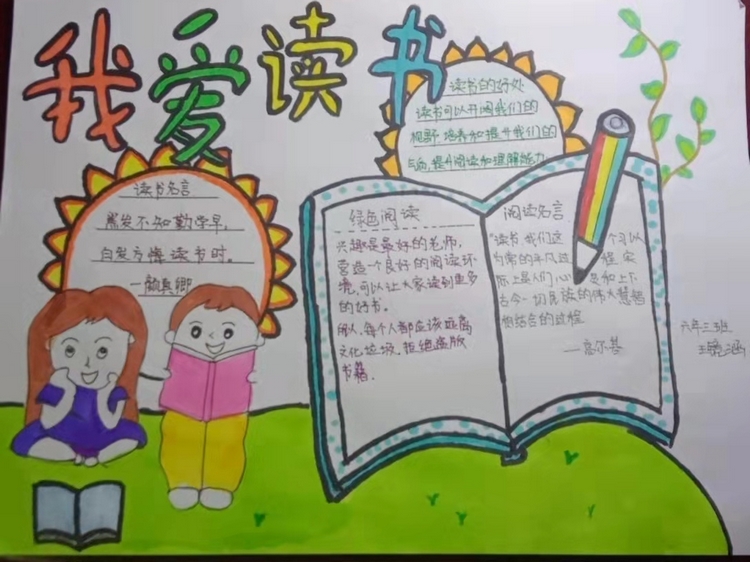 我爱读书
读书的好处
读书可以开阔我们的
视野 培养和提升我们的
与问，提升阅读和理解能力
读书名言
黑发不知勤学早，
白发方悔读书时。
—颜真卿
绿色阅读
兴趣是最好的老师，
营造一个良好的阅读环
境，可以让大家读到更多
的好书。
所以，每个人都应该远离
文化垃圾，拒绝盗版
书籍.
阅读名言
"读书，我们这 个习以
为常的平凡过 程，实
际上是人们心 灵和上下
古今一切民族的伟大慧智
相结合的过程
—高尔基
六年三班